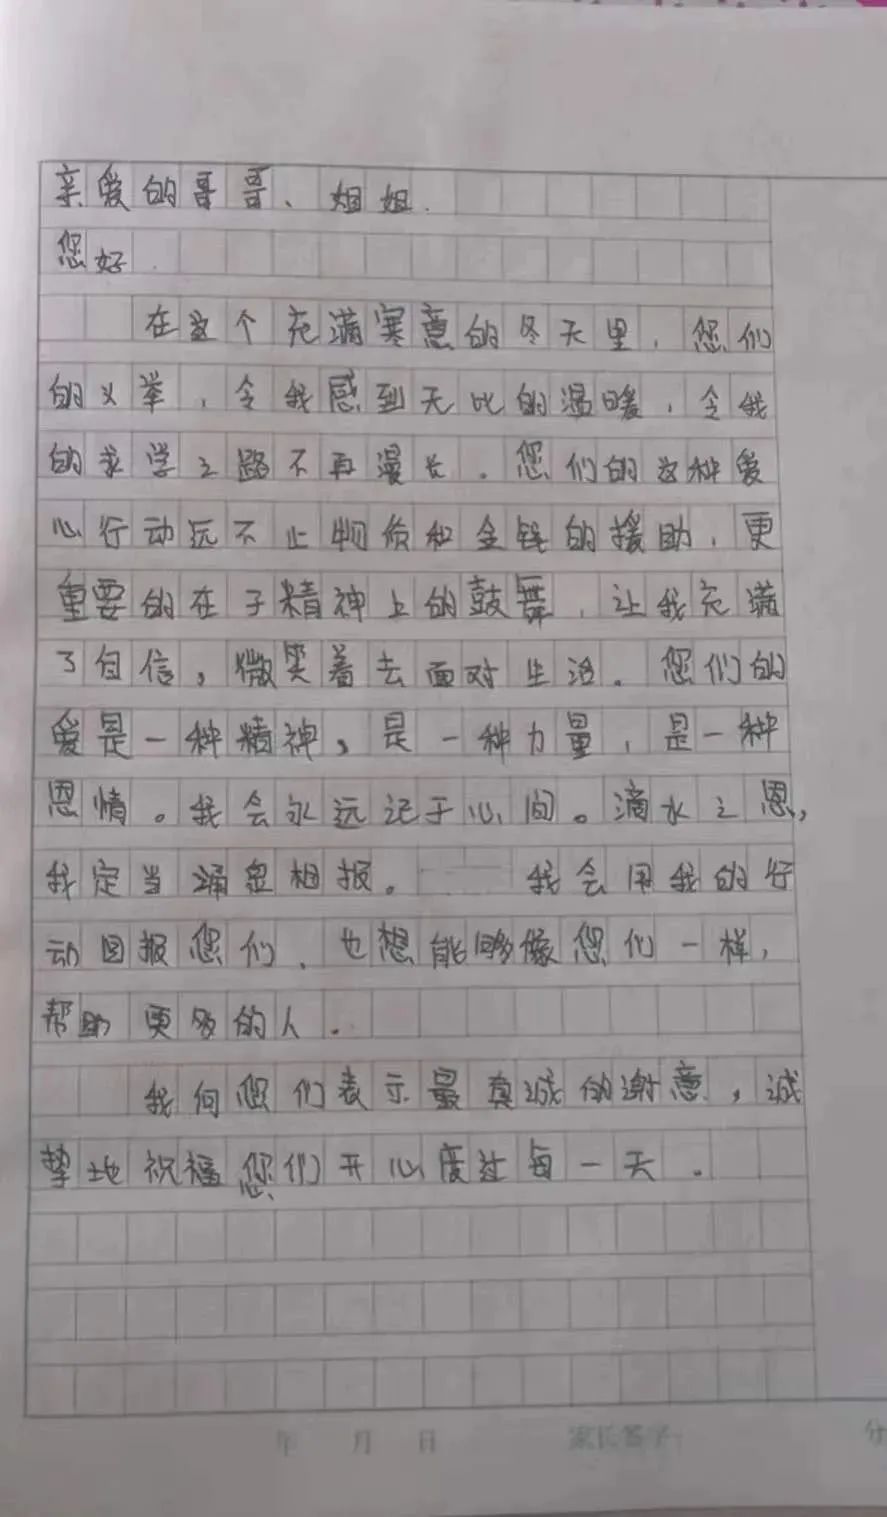 亲爱的哥哥、姐姐.
您好.
在这个充满寒意的冬天里，您们
的义举，令我感到无比的温暖，令我
的求学之路不再漫长。您们的这种爱
心行动远不止物质和金钱的援助，更
重要的在于精神上的鼓舞，让我充满
了自信，微笑着去面对生活。您们的
爱是一种精神，是一种力量，是一种
恩情。我会永远记于心间。滴水之恩，
我定当涌泉相报。 我会用我的行
动回报您们、也想能够像您们一样，
帮助更多的人。
我向您们表示最真诚的谢意，诚
挚地祝福您们开心度过每一天。
年 月 日 家长签字